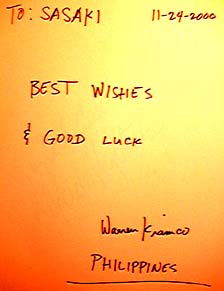 To: SASAKI 11-24-2000
BEST WISHES
& GOOD LUCK
Warren Kiamco
PHILIPPINES